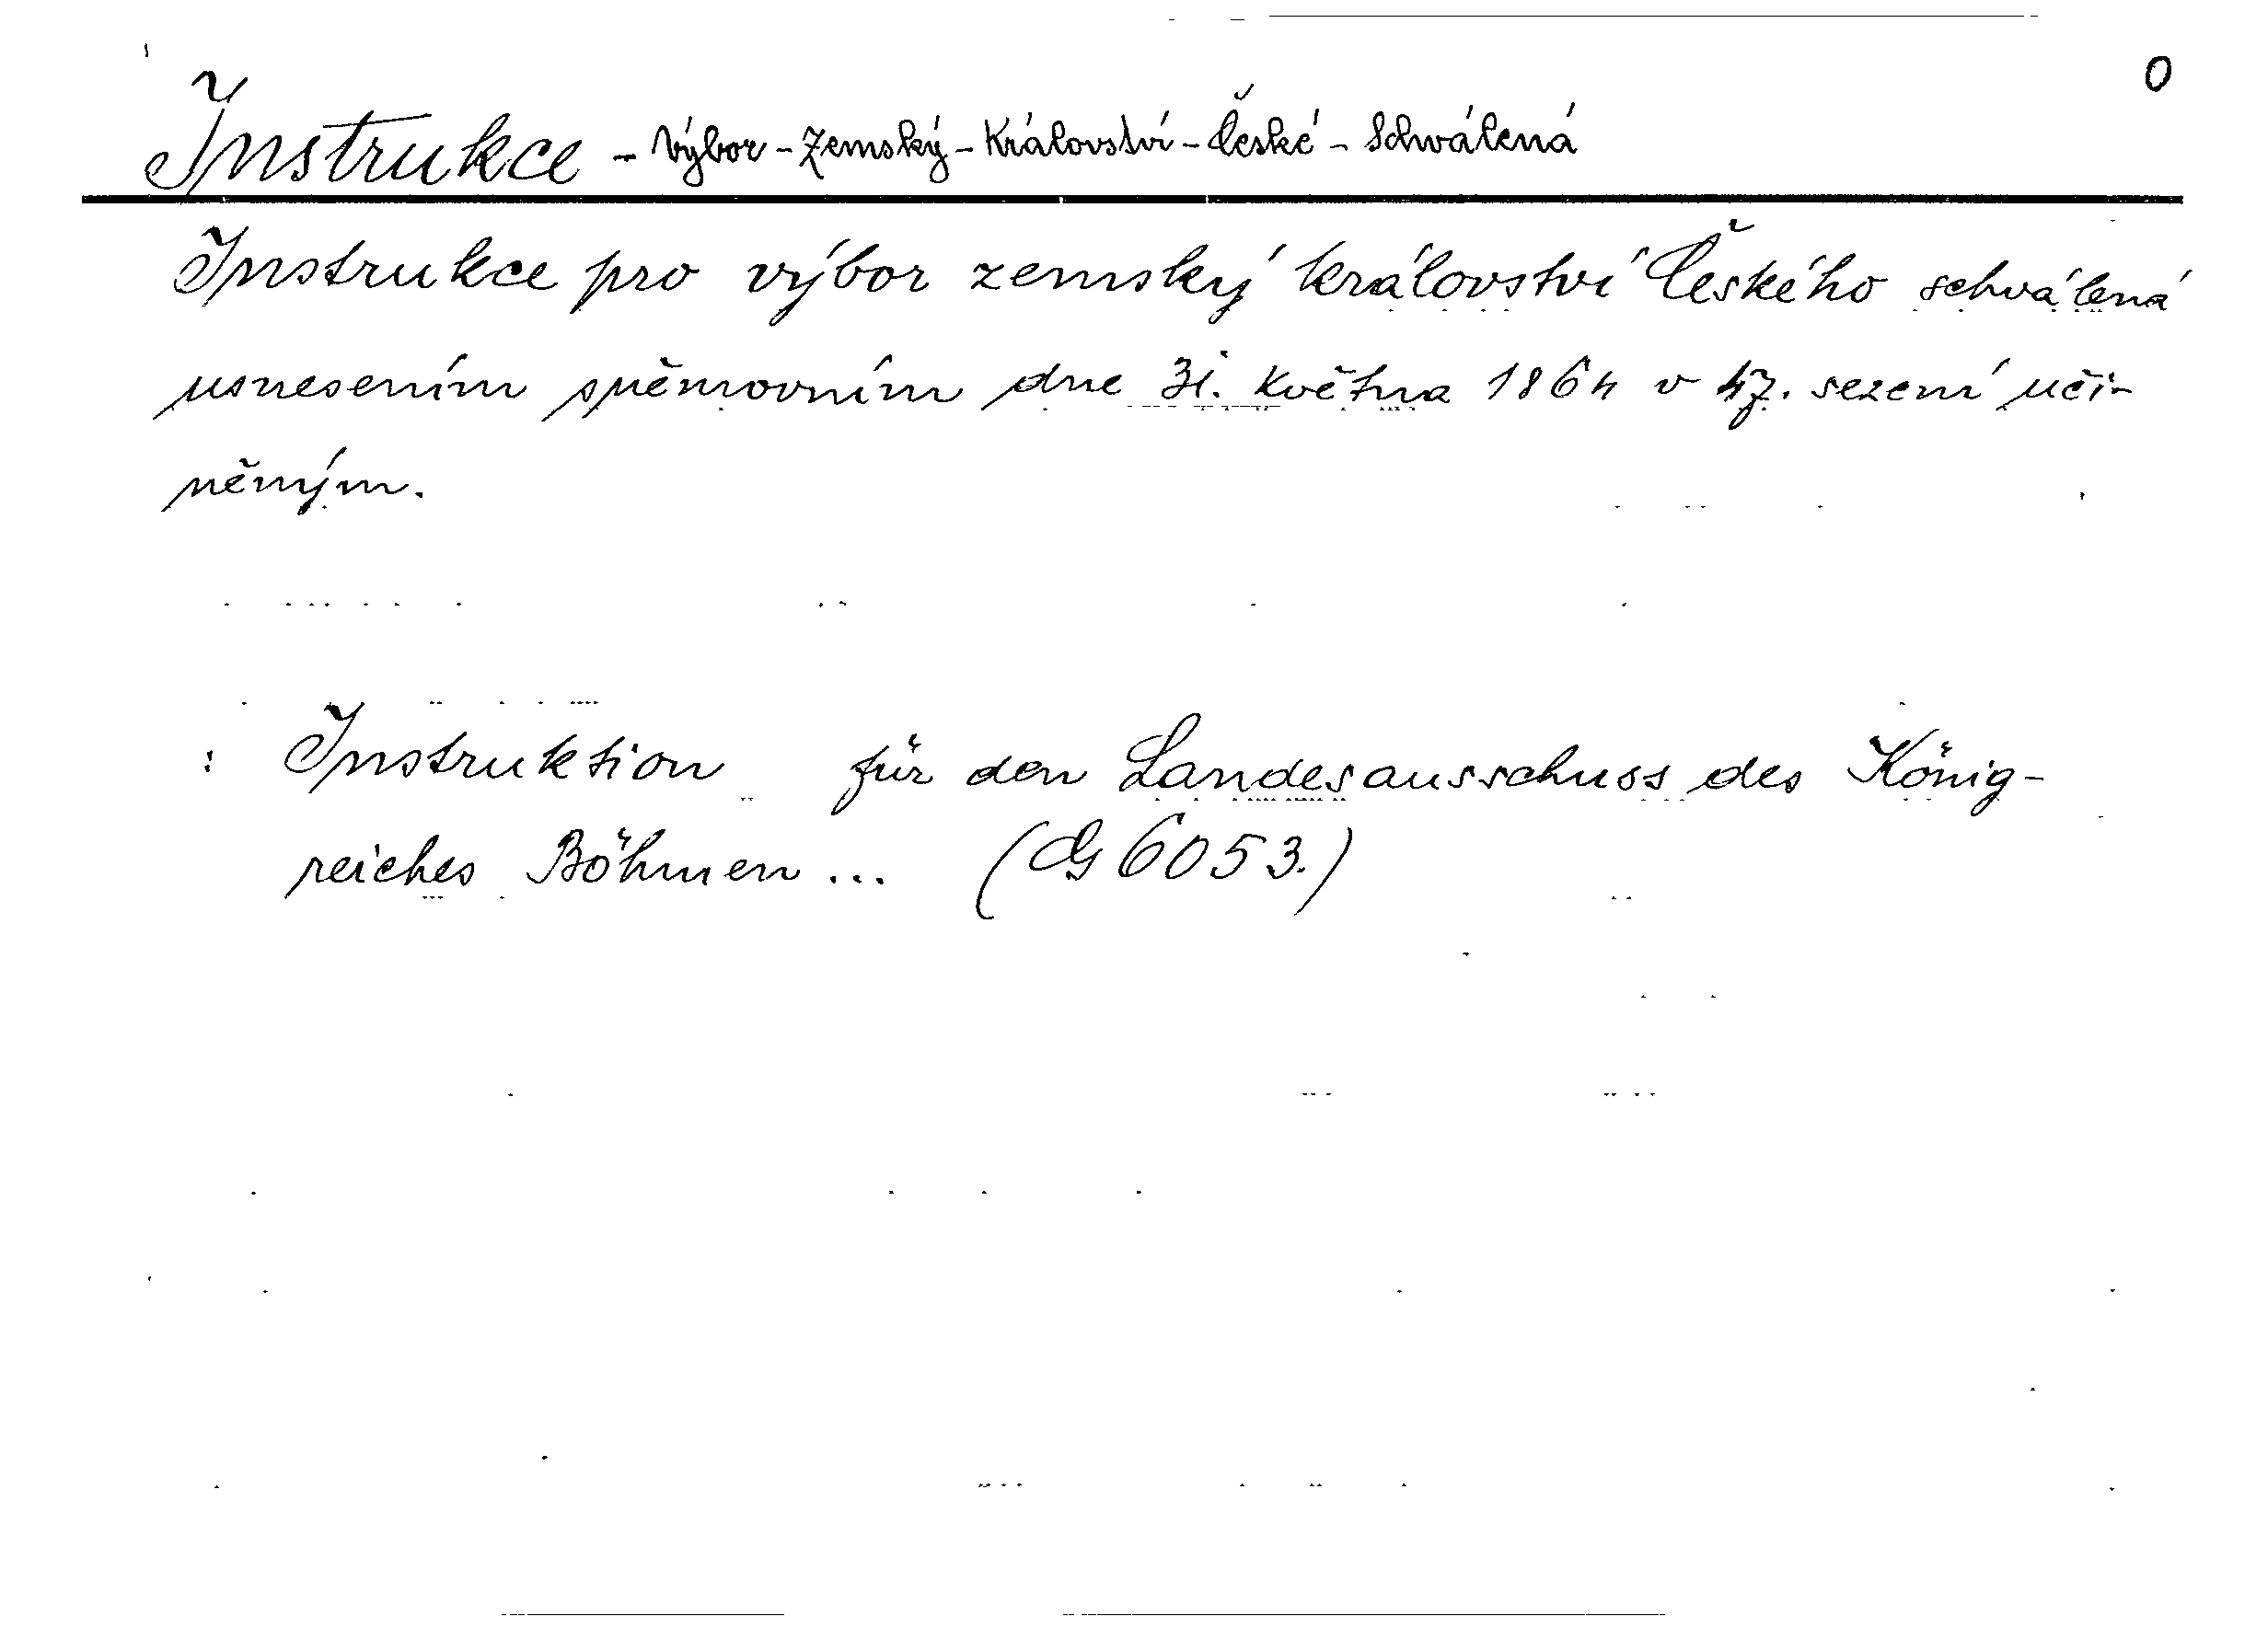 0
Instrukce - Výbor - Zemský - Království - České - Schválená
Instrukce pro výbor zemský království Českého schválená
usnesením sněmovním dne 31. května 1864 v 47. sezení uči-
něným.
: Instruktion für den Landesausschuss des König-
reiches Böhmen ... (G 6053.)